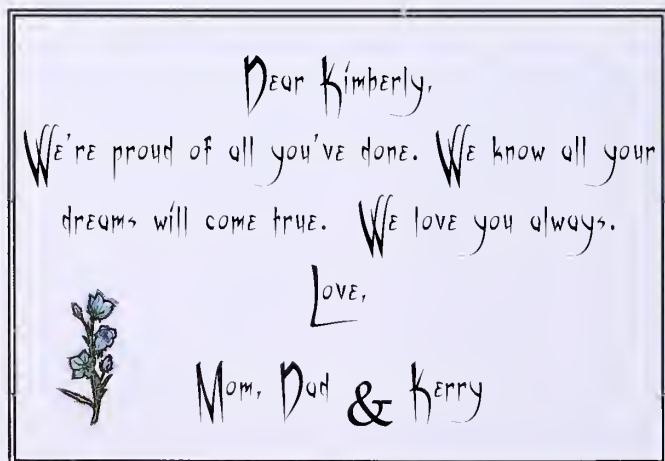 Dear Kimberly,
We're proud of all you've done. We know all your
dreams will come true. We love you always.
Love,
Mom, Dad & Kerry